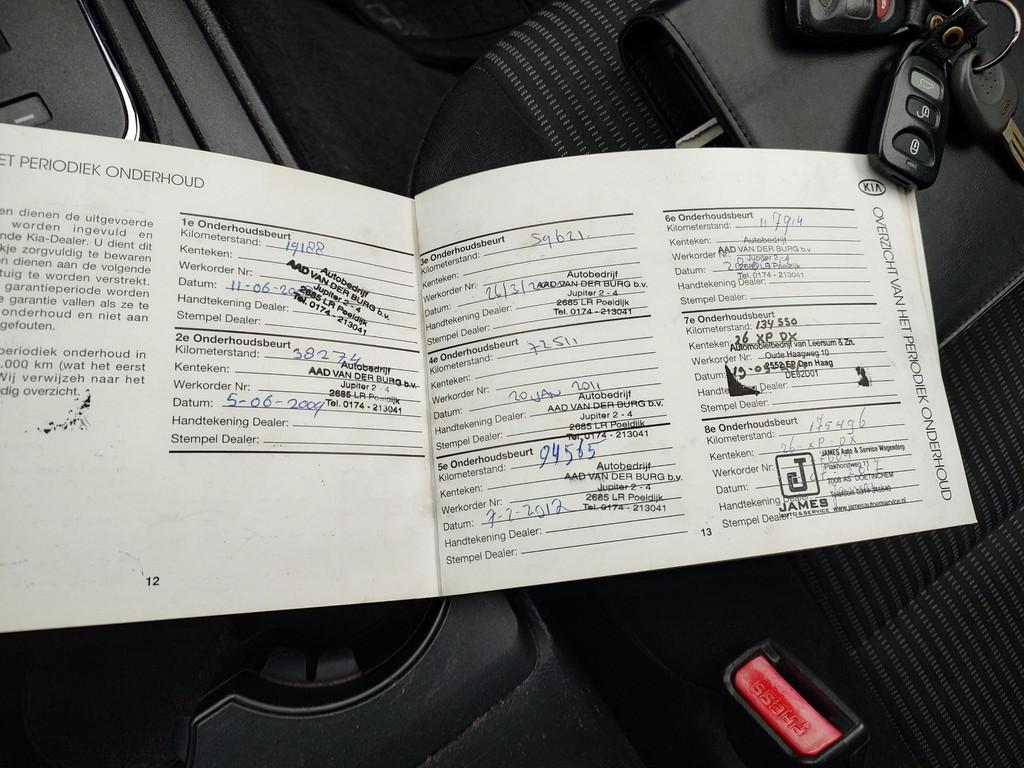 ET PERIODIEK ONDERHOUD
en dienen de uitgevoerde
worden ingevuld en
nde Kia-Dealer. U dient dit
kje zorgvuldig te bewaren
en dienen aan de volgende
tuig te worden verstrekt.
garantieperiode worden
e garantie vallen als ze te
onderhoud en niet aan
gefouten.
periodiek onderhoud in
.000 km (wat het eerst
Wij verwijzen naar het
dig overzicht.
1e Onderhoudsbeurt
Kilometerstand: 19188
Kenteken:
Werkorder Nr:
Datum: 11-06-
Handtekening Dealer:
Stempel Dealer:
Autobedrijf
AAD VAN DER BURG b.v.
Jupiter 2 - 4
2685 LR Poeldijk
Tel. 0174 - 213041
2e Onderhoudsbeurt
Kilometerstand: 38274
Kenteken:
Werkorder Nr:
Datum: 5-06-2009
Handtekening Dealer:
Stempel Dealer:
Autobedrijf
AAD VAN DER BURG b.v.
Jupiter 2 - 4
2685 LR Poeldijk
Tel. 0174 - 213041
12
3e Onderhoudsbeurt
Kilometerstand: 59621
Kenteken:
Werkorder Nr:
Datum: 26/3/
Handtekening Dealer:
Stempel Dealer:
Autobedrijf
AAD VAN DER BURG b.v.
Jupiter 2 - 4
2685 LR Poeldijk
Tel. 0174 - 213041
4e Onderhoudsbeurt
Kilometerstand: 72511
Kenteken:
Werkorder Nr:
Datum: 20 JAN 2011
Handtekening Dealer:
Stempel Dealer:
Autobedrijf
AAD VAN DER BURG b.v.
Jupiter 2 - 4
2685 LR Poeldijk
Tel. 0174 - 213041
5e Onderhoudsbeurt
Kilometerstand: 94565
Kenteken:
Werkorder Nr:
Datum: 7-2-2012
Handtekening Dealer:
Stempel Dealer:
Autobedrijf
AAD VAN DER BURG b.v.
Jupiter 2 - 4
2685 LR Poeldijk
Tel. 0174 - 213041
6e Onderhoudsbeurt
Kilometerstand: 117914
Kenteken:
Werkorder Nr:
Datum:
Handtekening Dealer:
Stempel Dealer:
Autobedrijf
AAD VAN DER BURG b.v.
Jupiter 2 - 4
2685 LR Poeldijk
Tel. 0174 - 213041
7e Onderhoudsbeurt
Kilometerstand: 134550
Kenteken: 26 XP DX
Werkorder Nr:
Datum:
Handtekening Dealer:
Stempel Dealer:
Automobielbedrijf van Leersum & Zn.
Oude Haagweg 10
2552 EP Den Haag
8e Onderhoudsbeurt
Kilometerstand: 175496
26-XP-DX
Werkorder Nr:
Datum:
Handtekening Dealer:
Stempel Dealer:
J
JAMES
AUTO & SERVICE
JAMES Auto & Service
DOETINCHEM
13
KIA
OVERZICHT VAN HET PERIODIEK ONDERHOUD
PRESS